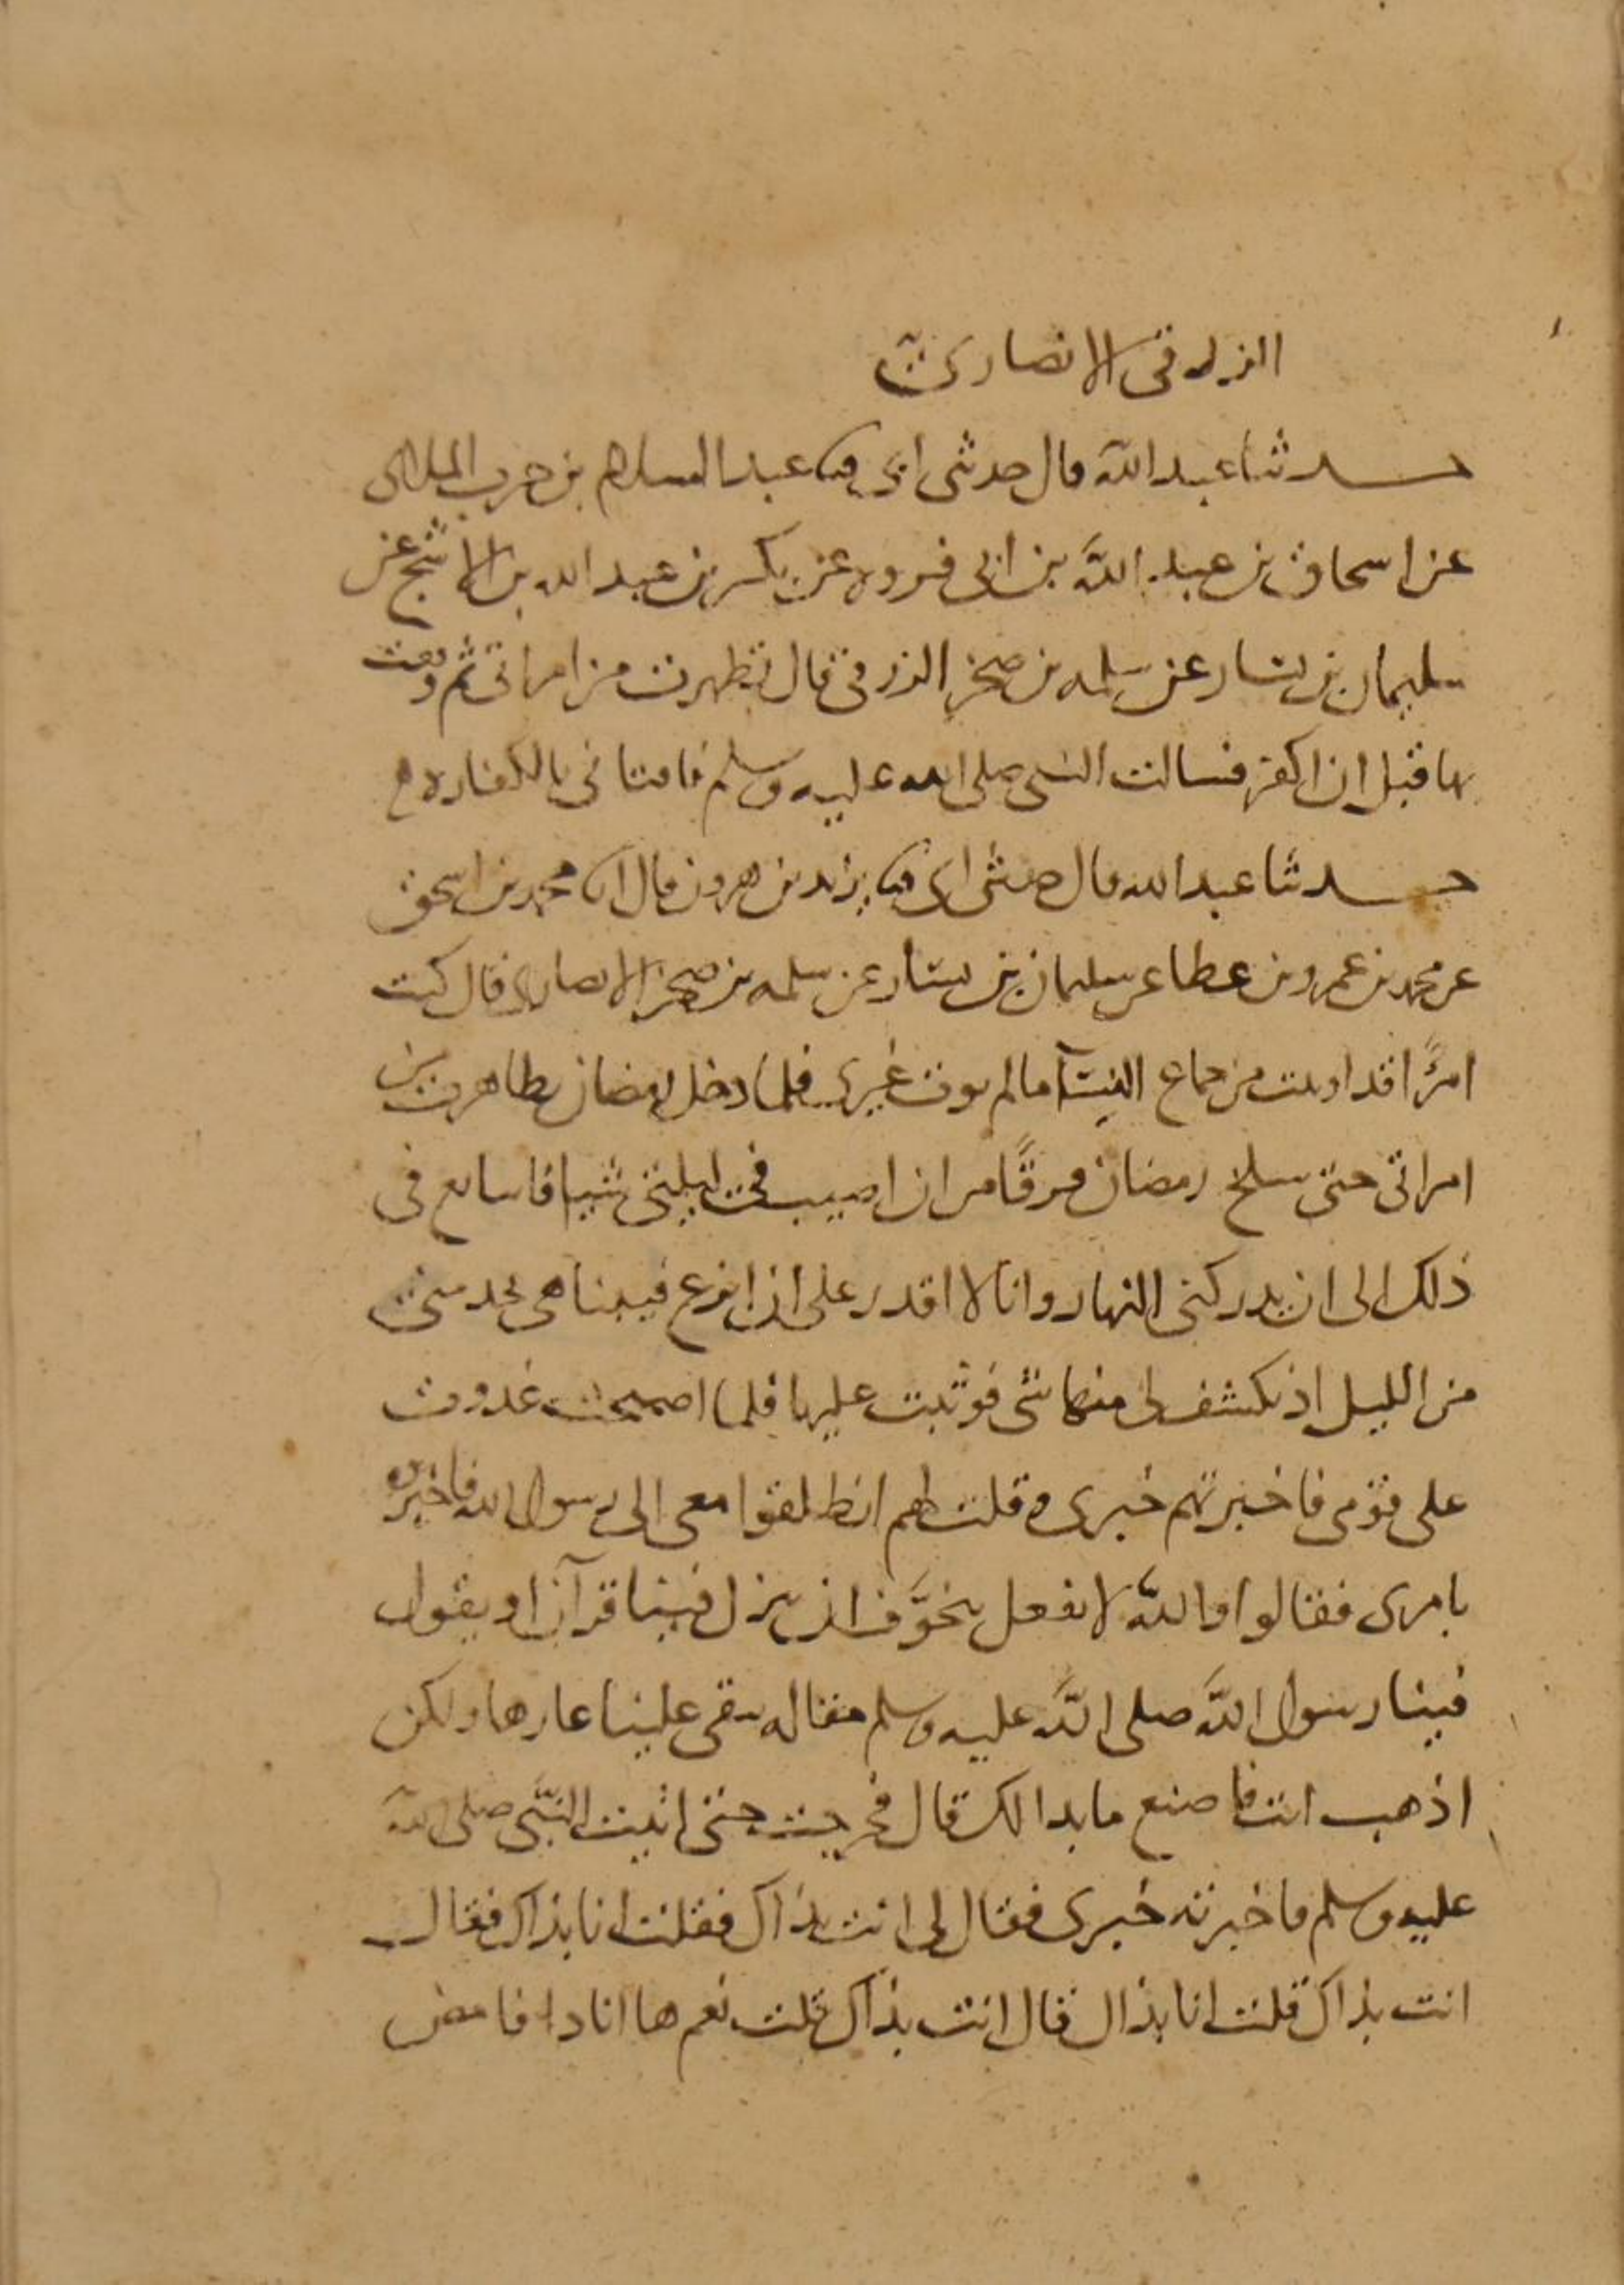 الزرقى الانصارى
حدثنا عبد الله قال حدثنى ابى ثنا عبد السلام بن حرب الملائى
عن اسحاق بن عبد الله بن ابى فروه عن بكير بن عبد الله بن الاشج عن
سليمان بن يسار عن سلمه بن صخر الزرقى قال تظهرت من امراتى ثم وقعت
بها قبل ان اكفر فسالت النبى صلى الله عليه وسلم فافتانى بالكفاره
حدثنا عبد الله قال حدثنى ابى ثنا يزيد بن هرون قال انا محمد بن اسحق
عن محمد بن عمرو بن عطا عن سليمان بن يسار عن سلمه بن صخر الانصارى قال كنت
امرًا قد اوتيت من جماع النسآ ما لم يوت غيرى فلما دخل رمضان تظاهرت من
امراتى حتى سلخ رمضان فرقًا من ان اصيب فى ليلتى شيا فاتايع فى
ذلك الى ان يدركنى النهار وانا لا اقدر على ان انزع فبينا هى تخدمنى
من الليل اذ تكشف لى منها شى فوثبت عليها فلما اصبحت غدوت
على قومى فاخبرتهم خبرى وقلت لهم انطلقوا معى الى رسول الله فاخبره
بامرى فقالوا والله لا نفعل نتخوَّف ان ينزل فينا قرآن او يقول
فينا رسول الله صلى الله عليه وسلم مقاله يبقى علينا عارها ولكن
اذهب انت فاصنع ما بدا لك قال فخرجت حتى اتيت النبى صلى الله
عليه وسلم فاخبرته خبرى فقال لى انت بذاك فقلت انا بذاك فقال
انت بذاك قلت انا بذاك قال انت بذاك قلت نعم ها انا ذا فامض